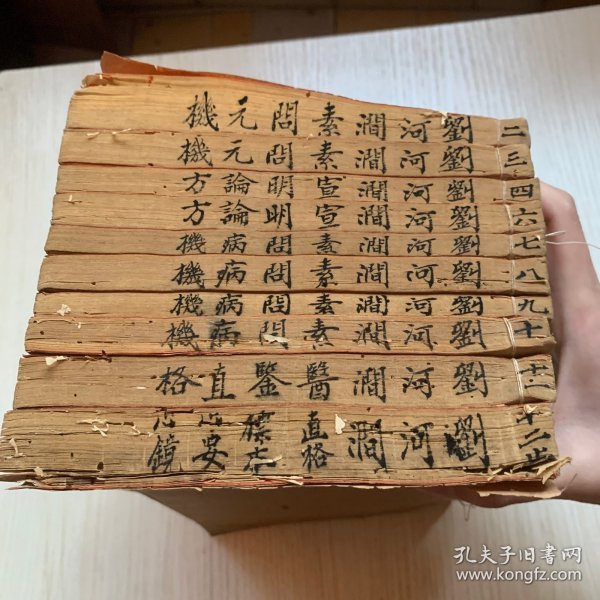 二 劉河澗素問元機
三 劉河澗素問元機
四 劉河澗宣明論方
六 劉河澗宣明論方
七 劉河澗素問病機
八 劉河澗素問病機
九 劉河澗素問病機
十 劉河澗素問病機
十一 劉河澗醫鑒直格
十二止 劉河澗直格標本心鏡
孔夫子旧书网
www.kongfz.com